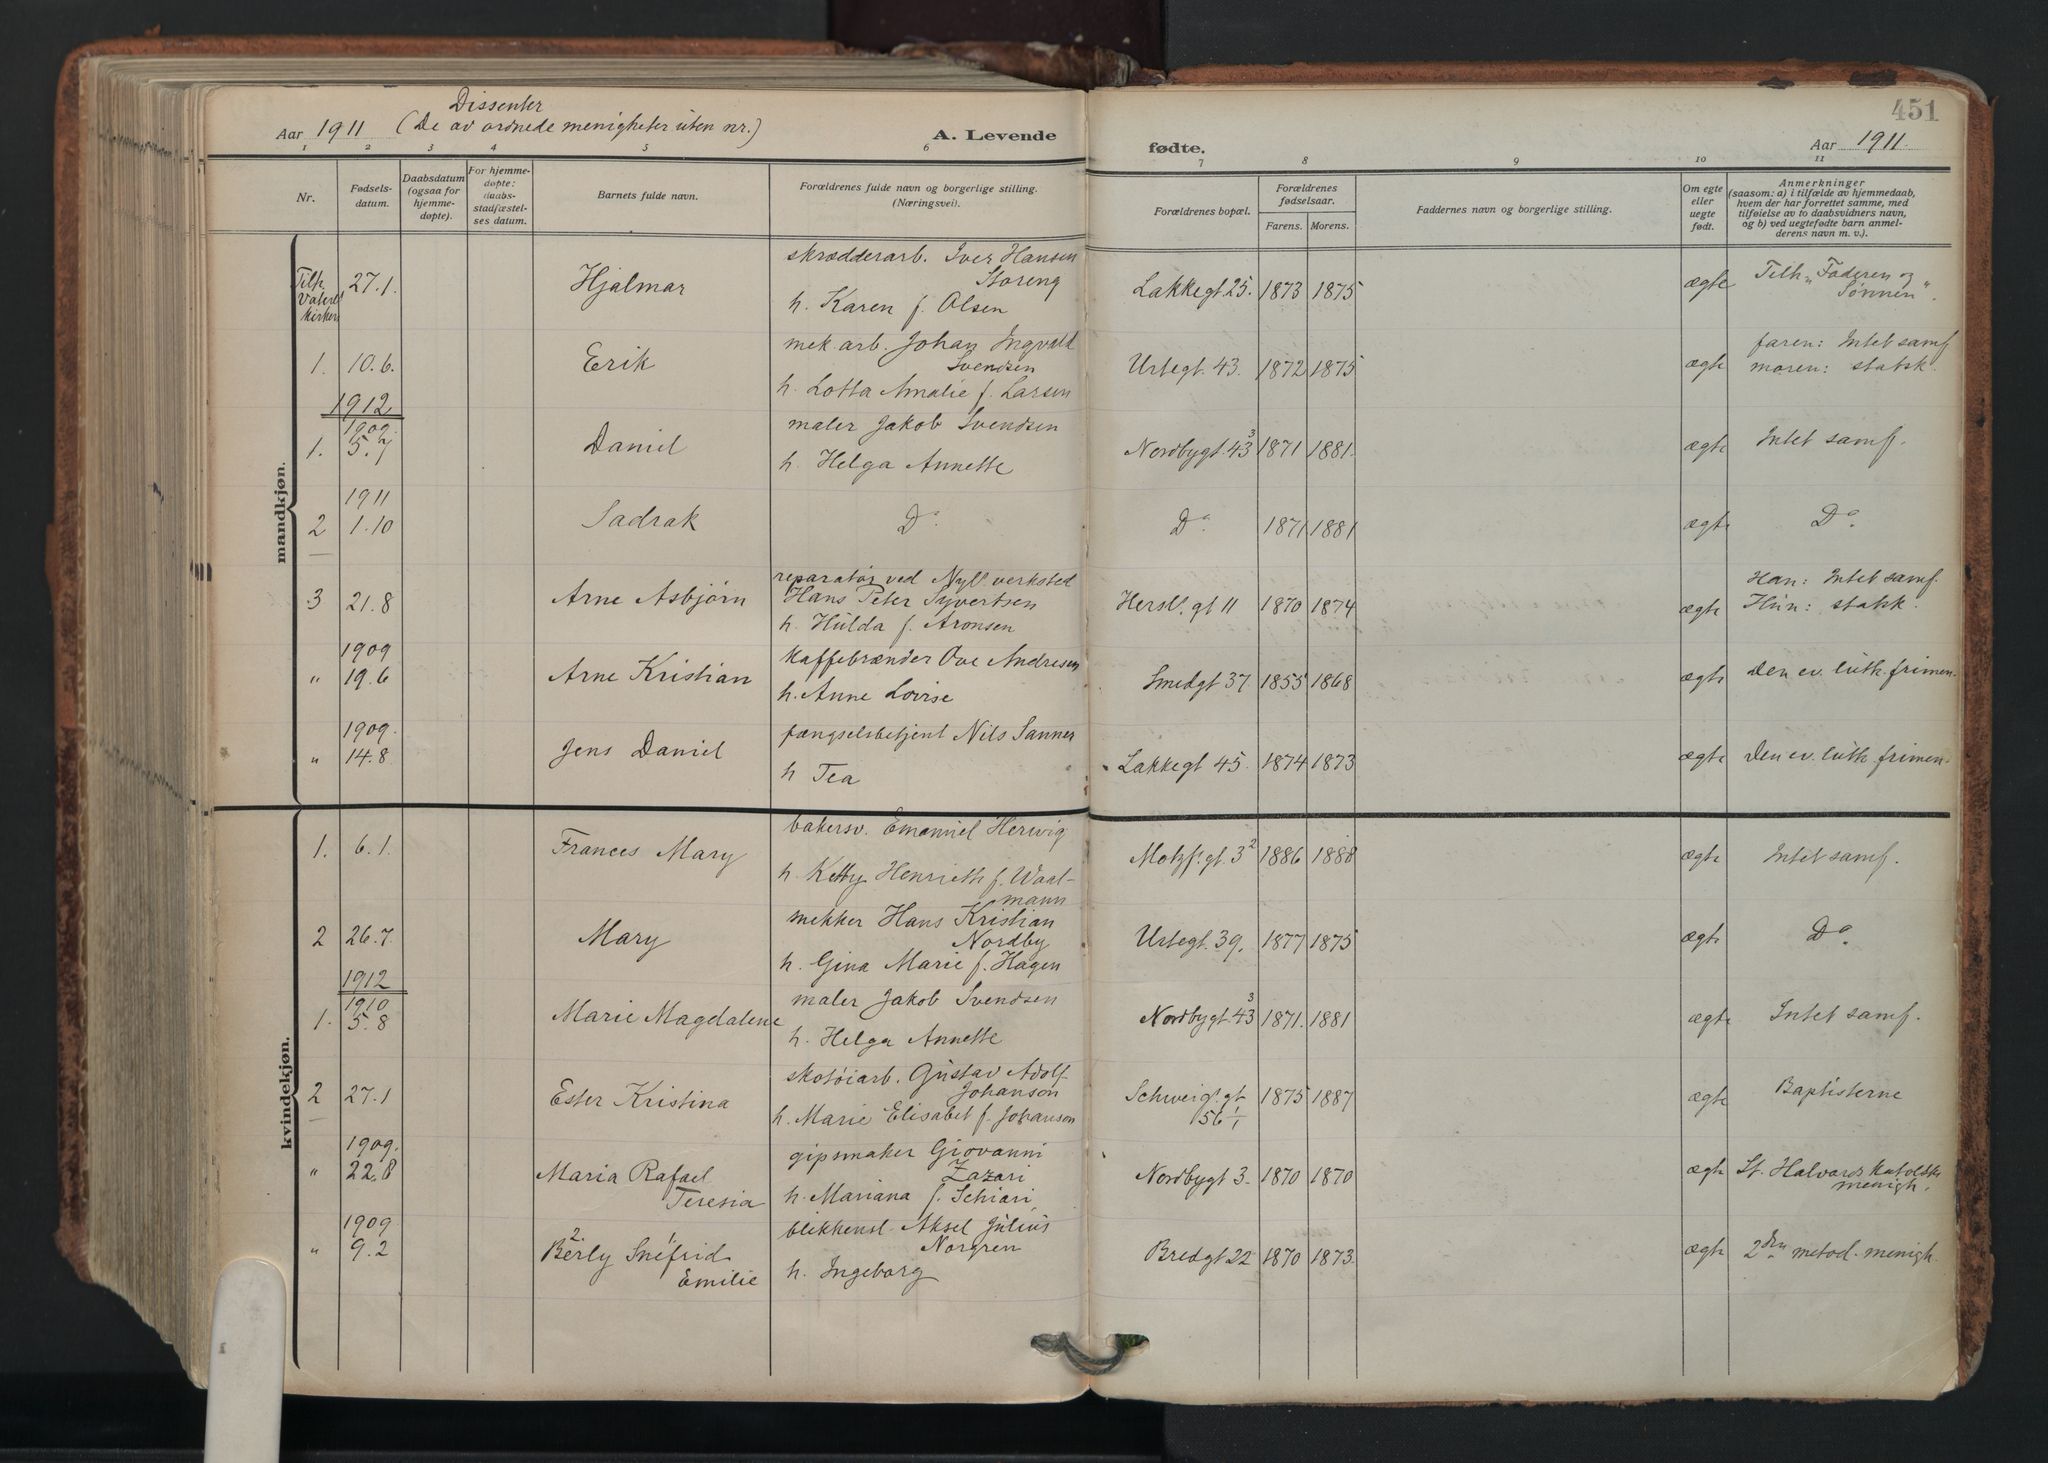 451
Dissenter
Aar 1911 (De av ordnede menigheter uten nr.) A. Levende fødte. Aar 1911.
1 2 3 4 5 6 7 8 9 10 11
Nr.
Fødsels-
datum.
Daabsdatum
(ogsaa for
hjemme-
døpte).
For hjemme-
døpte:
daabs-
stadfæstel-
ses datum.
Barnets fulde navn.
Forældrenes fulde navn og borgerlige stilling.
(Næringsvei).
Forældrenes bopæl.
Forældrenes
fødselsaar.
Farens. Morens.
Faddernes navn og borgerlige stilling.
Om egte
eller
uegte
født.
Anmerkninger
(saasom: a) i tilfælde av hjemmedaab,
hvem der har forrettet samme, med
tilføielse av to daabsvidners navn,
og b) ved uegtefødte barn anmel-
derens navn m. v.).
mandkjøn.
skrædderarb. Iver Hansen
Storeng
27.1. Hjalmar Lakkegt 25. 1873 1875 ægte Tilh. „Faderen og
Sønnen“.
kirken h. Karen f. Olsen
mek. arb. Johan Ingvald
Svendsen
1. 10.6. Erik Urtegt. 43. 1872 1875 ægte faren: Intet samf
moren: statsk.
h. Lotta Amalie f. Larsen
1912
1909.
1. 5.7 Daniel maler Jakob Svendsen Nordbygt. 43 3 1871 1881. ægte Intet samf.
h. Helga Annette
1911
2 1.10 Sadrak Do. Do. 1871 1881 ægte Do.
3 21.8 Arne Asbjørn reparatør ved Nyl. verksted
Hans Peter Syvertsen Hersl. gt 11 1870 1874 ægte Han: Intet samf.
Hun: statsk.
h. Hulda f. Aronsen
1909
" 19.6 Arne Kristian kaffebrænder Ove Andresen Smedgt 37 1855 1868 ægte Den ev. luth. frimen-
h. Anne Lovise
1909.
" 14.8 Jens Daniel fængselsbetjent Nils Sanner Lakkegt 45. 1874 1873 ægte Den ev. luth. frimen-
h Tea
kvindekjøn.
1. 6.1. Frances Mary bakersv. Emanuel Herwig Motzf. gt. 3 2 1886 1888 ægte Intet samf.
h. Ketty Henrieth f. Waal-
mann
2 26.7. Mary mekker Hans Kristian
Nordby Urtegt. 39. 1877 1875 ægte Do.
h. Gina Marie f. Hagen
1912
1910
1. 5.8 Marie Magdalene maler Jakob Svendsen Nordbygt. 43 3 1871. 1881 ægte Intet samf.
h. Helga Annette
2 27.1 Ester Kristina skotøiarb. Gustav Adolf
Johanson Schweig. gt
156 1/1 1875 1887 ægte Baptisterne
h. Marie Elisabet f. Johanson
1909.
" 22.8 Maria Rafael
Teresia gipsmaker Giovanni
Zazari Nordbygt 3. 1870 1870 ægte St. Halvards katolske
menigh.
h. Mariana f. Schiari
1909
" 9.2 2. Berly 1. Snéfrid
Emilie blikkensl. Aksel Julius
Norgren Bredgt 22 1870 1873. ægte 2den metod. menigh.
h. Ingeborg